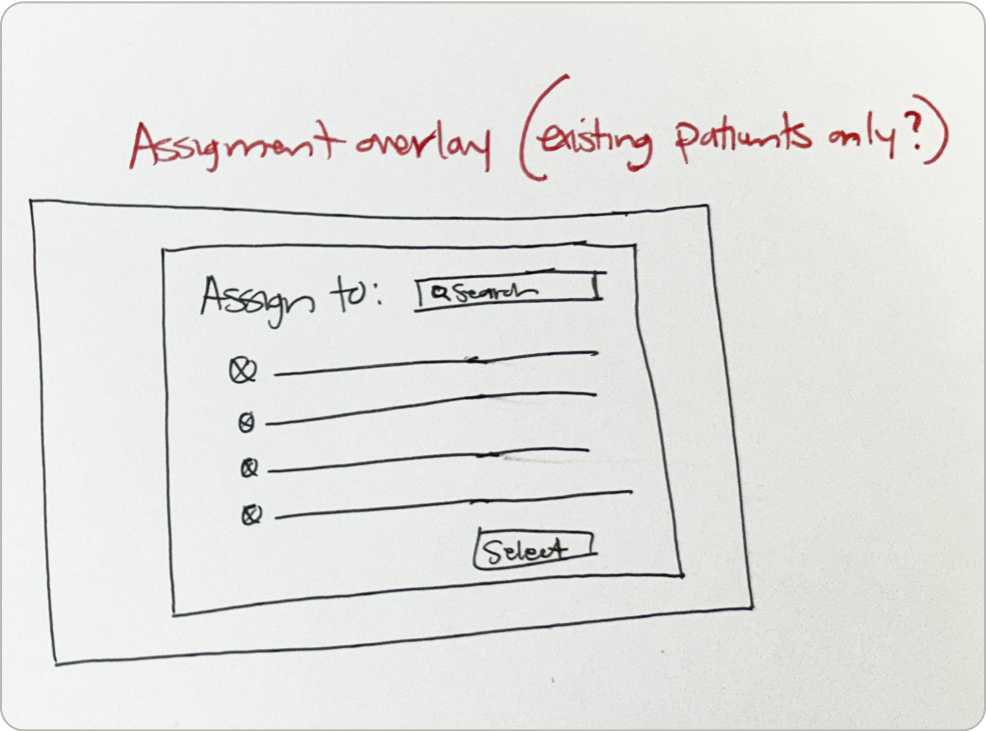 Assignment overlay (existing patients only?)
Assign to: Search
Select